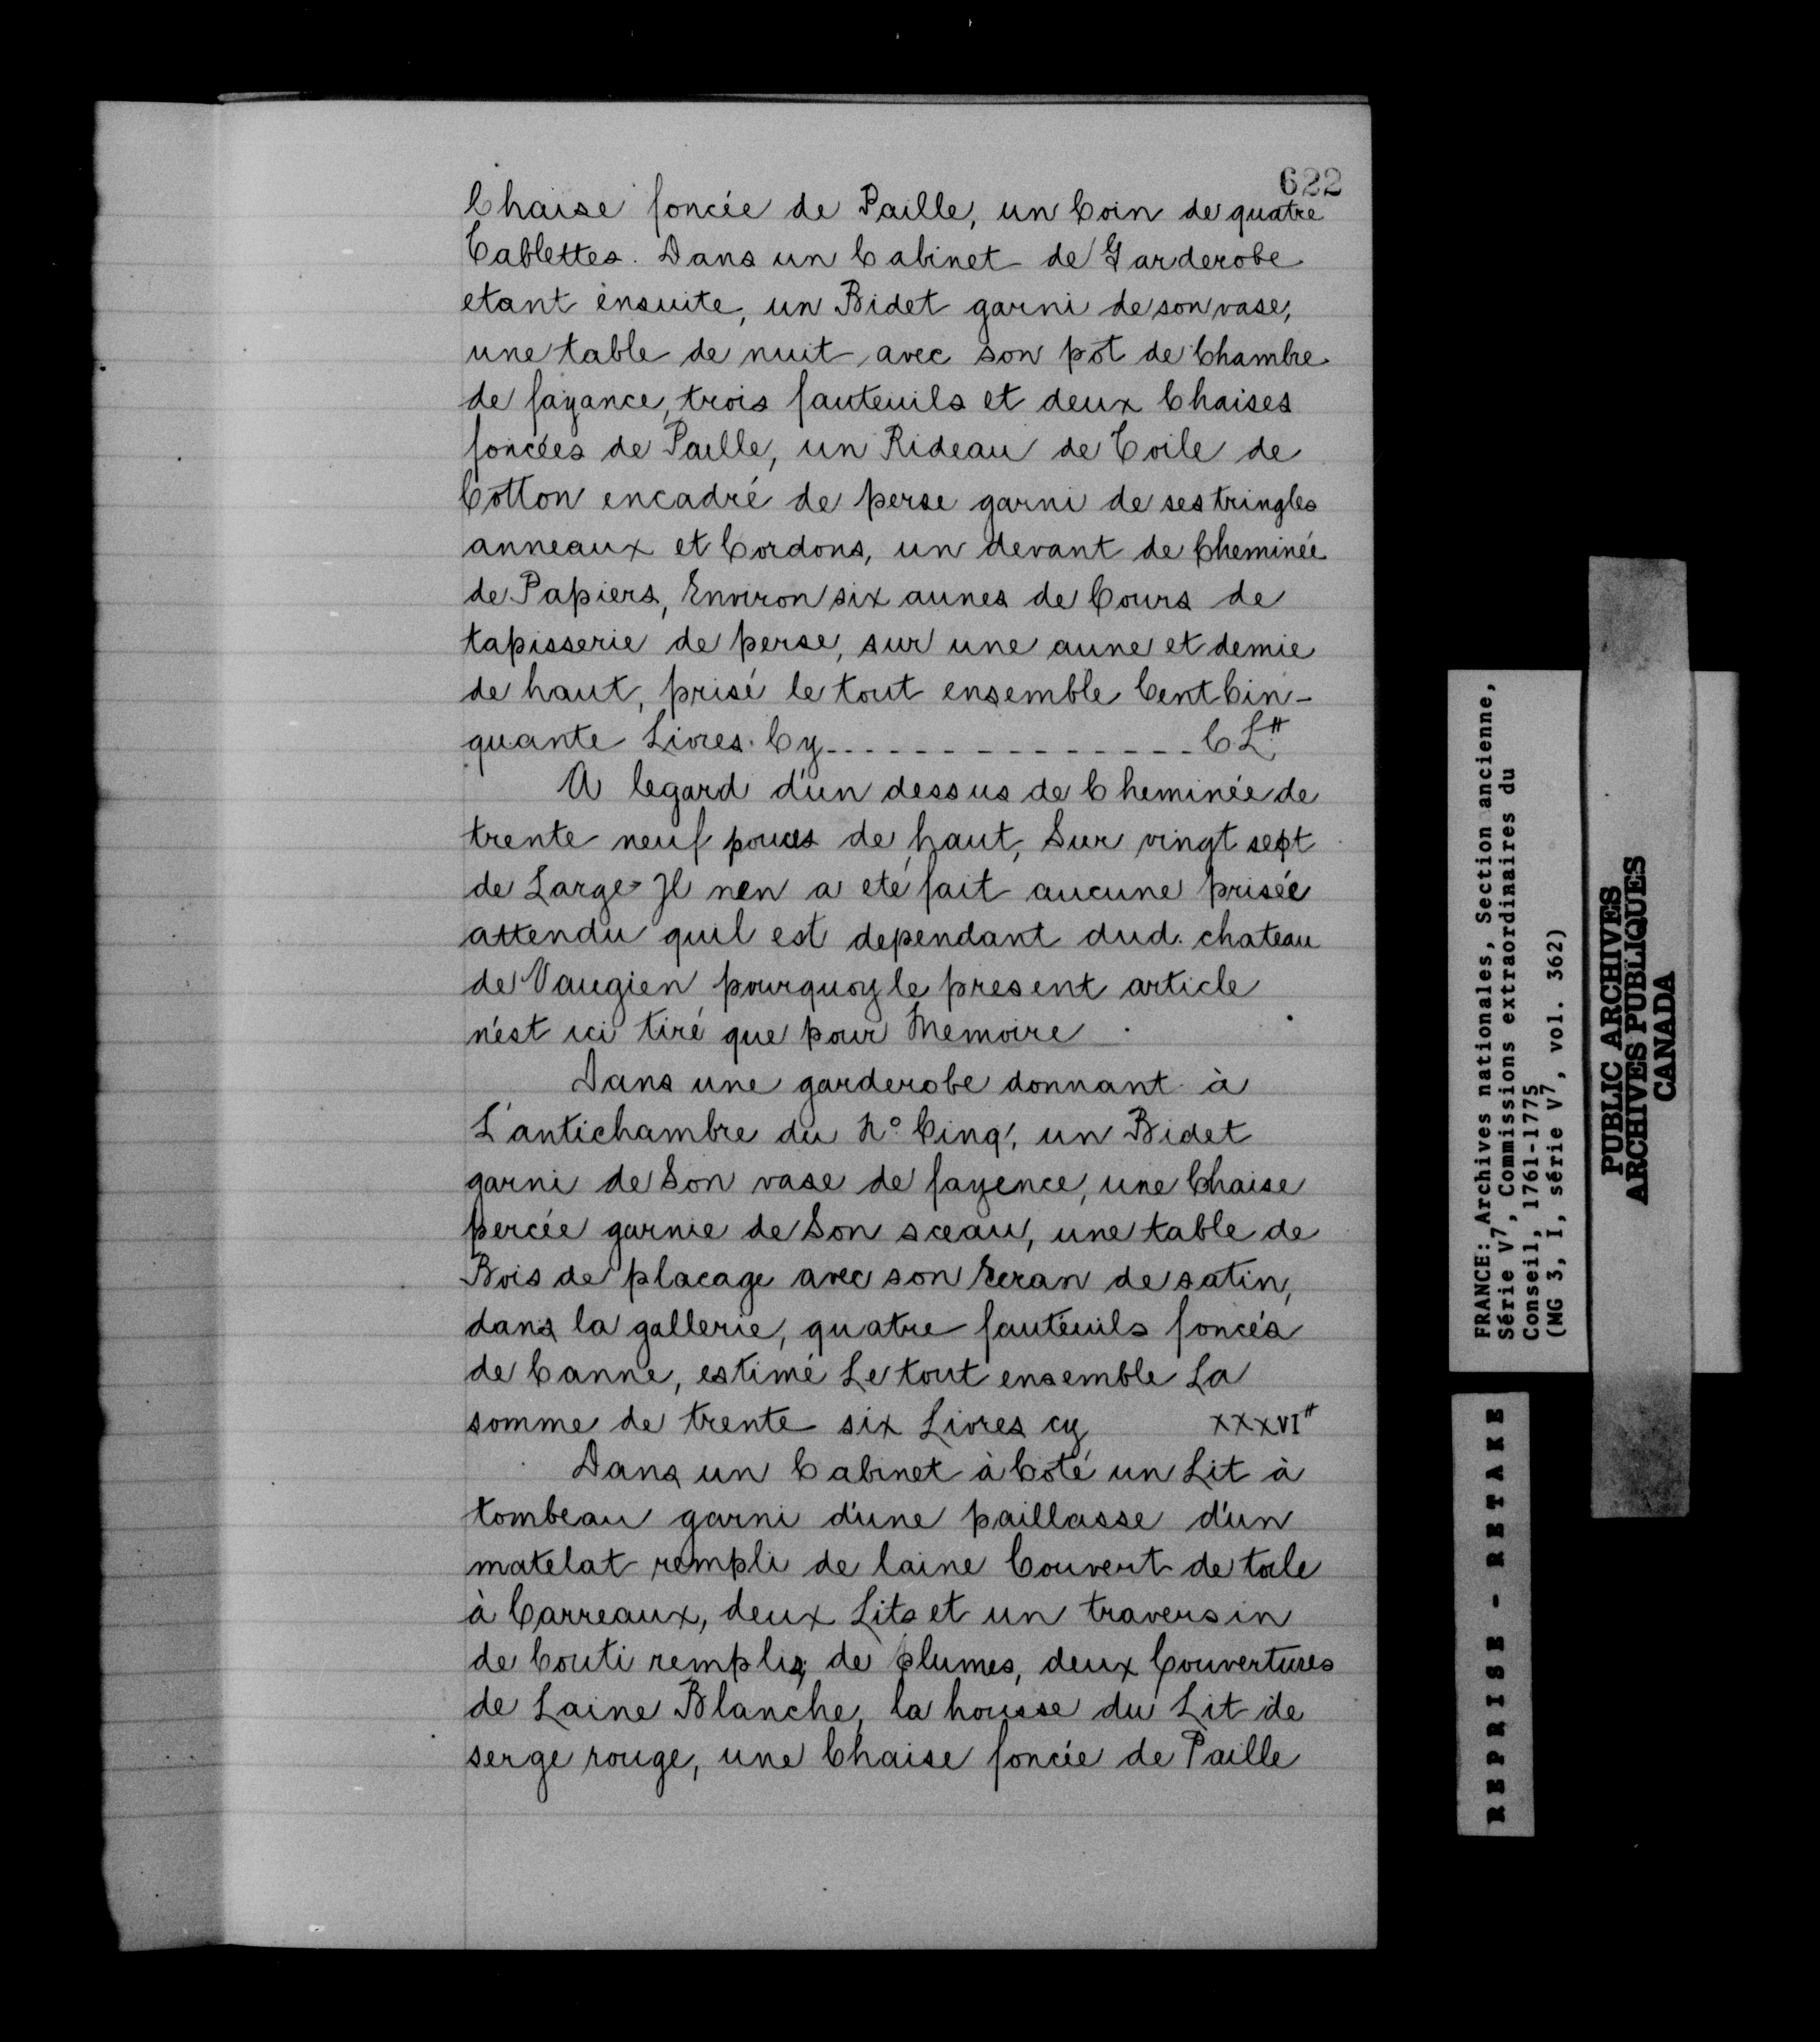 622
Chaise foncée de Paille, un Coin de quatre
Tablettes. Dans un Cabinet de Garderobe
etant ensuite, un Bidet garni de son vase,
une table de nuit avec son pot de Chambre
de fayance, trois fauteuils et deux Chaises
foncées de Paille, un Rideau de Toile de
Cotton encadré de perse garni de ses tringles
anneaux et Cordons, un devant de Cheminée
de Papiers, Environ six aunes de Cours de
tapisserie de perse, sur une aune et demie
de haut, prisé le tout ensemble Cent Cin-
quante Livres. Cy - - - - - - - - - - - - - - - - CL.#
A legard d'un dessus de Cheminée de
trente neuf pouces de haut, Sur vingt sept
de Large Il nen a eté fait aucune prisée
attendu quil est dependant dud. chateau
de Vaugien pourquoy le present article
n'est ici tiré que pour Memoire .
Dans une garderobe donnant à
L'antichambre du No Cinq, un Bidet
garni de Son vase de fayence, une Chaise
percée garnie de Son sceau, une table de
Bois de placage avec son Ecran de satin,
dans la gallerie, quatre fauteuils foncés
de Canne, estimé Le tout ensemble La
somme de trente six Livres cy XXXVI#
Dans un Cabinet à Coté un Lit à
tombeau garni d'une paillasse d'un
matelat rempli de laine Couvert de toile
à Carreaux, deux Lits et un traversin
de Couti remplis de plumes, deux Couvertures
de Laine Blanche, la housse du Lit de
serge rouge, une Chaise foncée de Paille
FRANCE: Archives nationales, Section ancienne,
Série V7, Commissions extraordinaires du
Conseil, 1761-1775
(MG 3, I, série V7, vol. 362)
PUBLIC ARCHIVES
ARCHIVES PUBLIQUES
CANADA
REPRISE - RETAKE